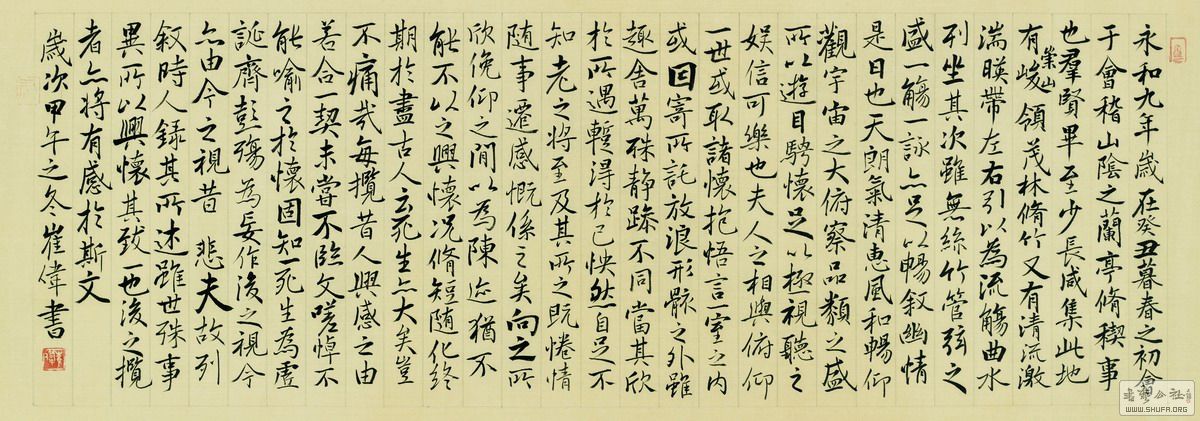 永和九年歲在癸丑暮春之初會
于會稽山陰之蘭亭脩稧事
也羣賢畢至少長咸集此地
有崇山峻領茂林脩竹又有清流激
湍暎帶左右引以為流觴曲水
列坐其次雖無絲竹管弦之
盛一觴一詠亦足以暢叙幽情
是日也天朗氣清惠風和暢仰
觀宇宙之大俯察品類之盛
所以遊目騁懷足以極視聽之
娛信可樂也夫人之相與俯仰
一世或取諸懷抱悟言一室之內
或因寄所託放浪形骸之外雖
趣舍萬殊静躁不同當其欣
於所遇蹔得於己怏然自足不
知老之將至及其所之既惓情
随事遷感慨係之矣向之所
欣俛仰之間以為陳迹猶不
能不以之興懷況脩短随化終
期於盡古人云死生亦大矣豈
不痛哉每攬昔人興感之由
若合一契未嘗不臨文嗟悼不
能喻之於懷固知一死生為虛
誕齊彭殤為妄作後之視今
亦由今之視昔 悲夫故列
叙時人錄其所述雖世殊事
異所以興懷其致一也後之攬
者亦將有感於斯文
歲次甲午之冬崔偉書
WWW.SHUFA.ORG